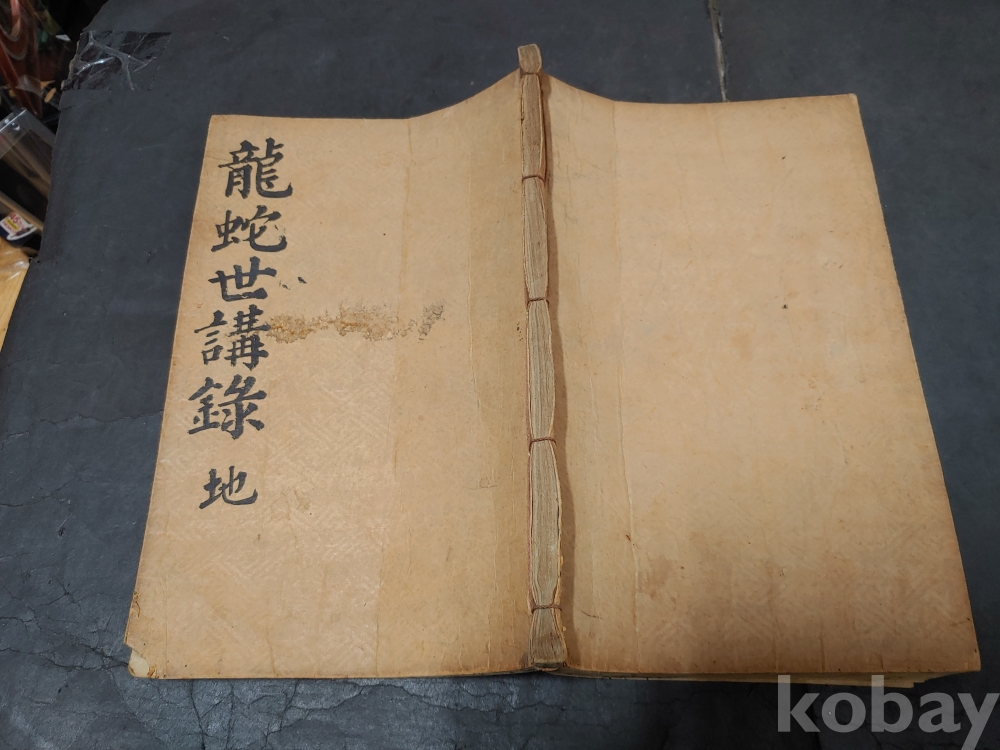 龍蛇世講錄 地
kobay